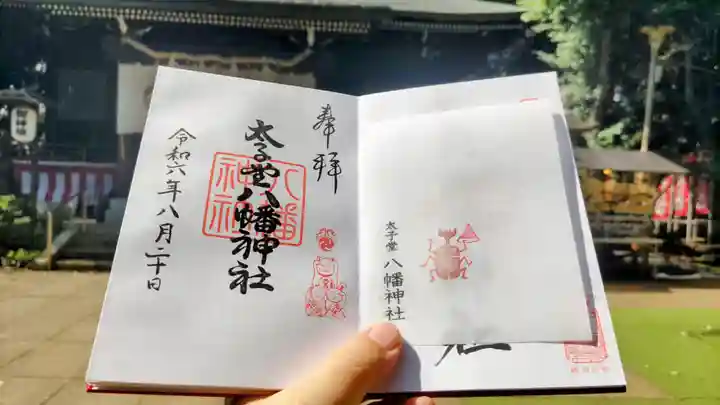 奉拝
太子堂八幡神社
八幡
神社
令和六年八月二十日
太子堂 八幡神社
社